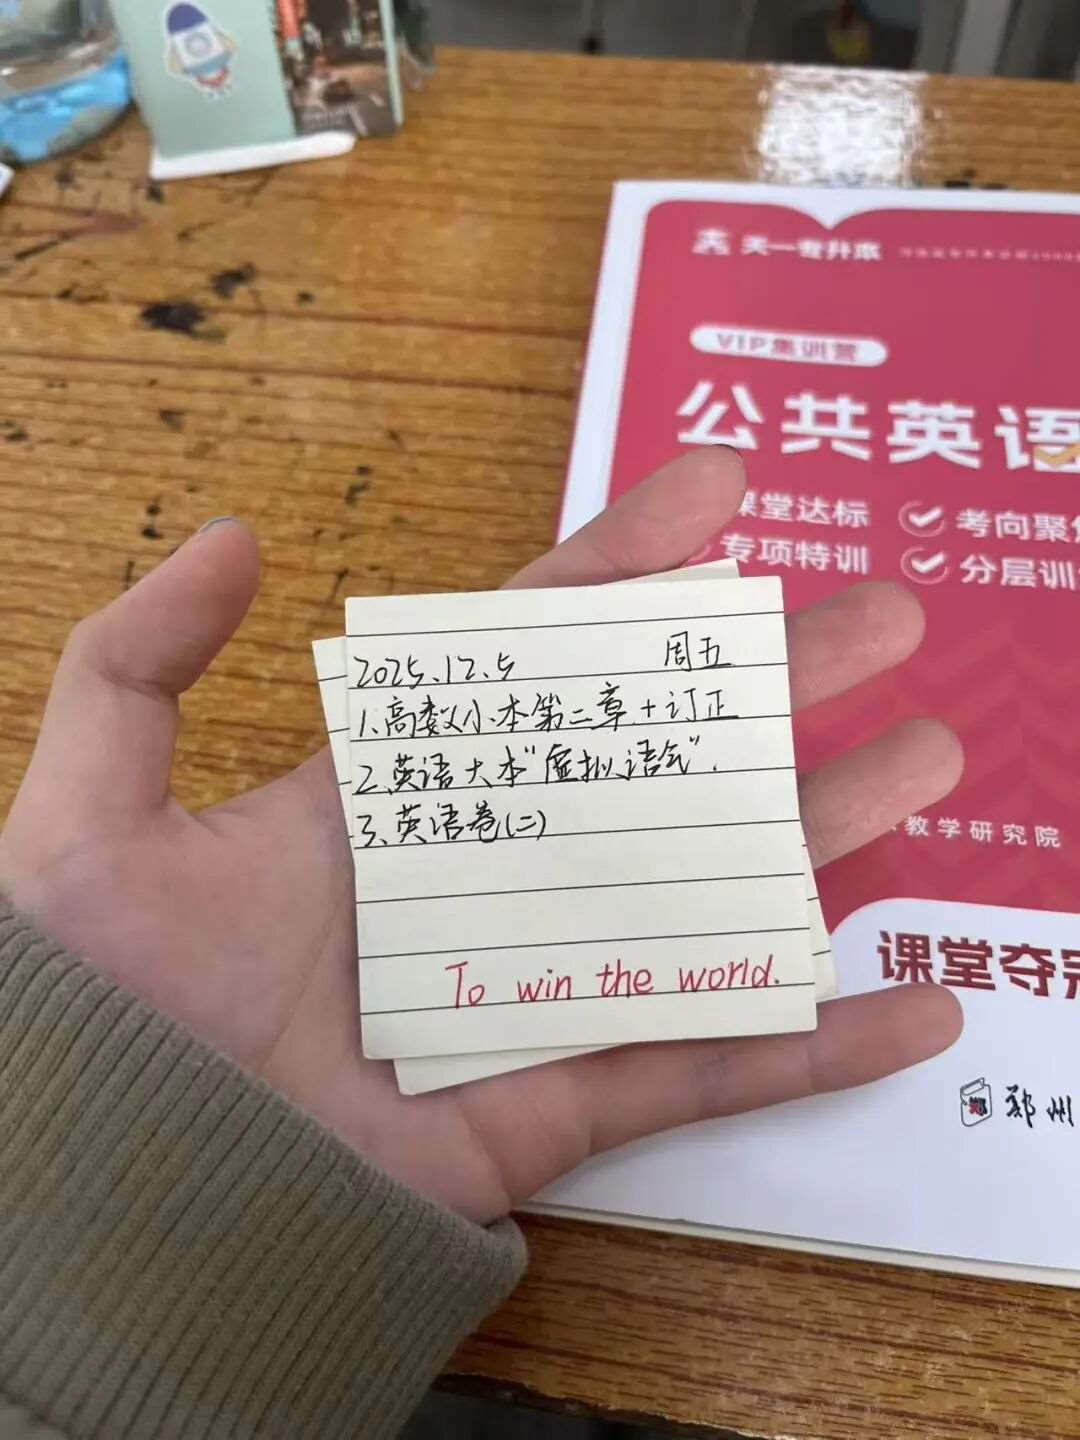 天一专升本
VIP集训营
公共英语
课堂达标
考向聚焦
专项特训
分层训
2025.12.5 周五
1.高数小本第二章+订正
2.英语大本“虚拟语气”.
3.英语卷(二)
To win the world.
教学研究院
课堂夺冠
郑州